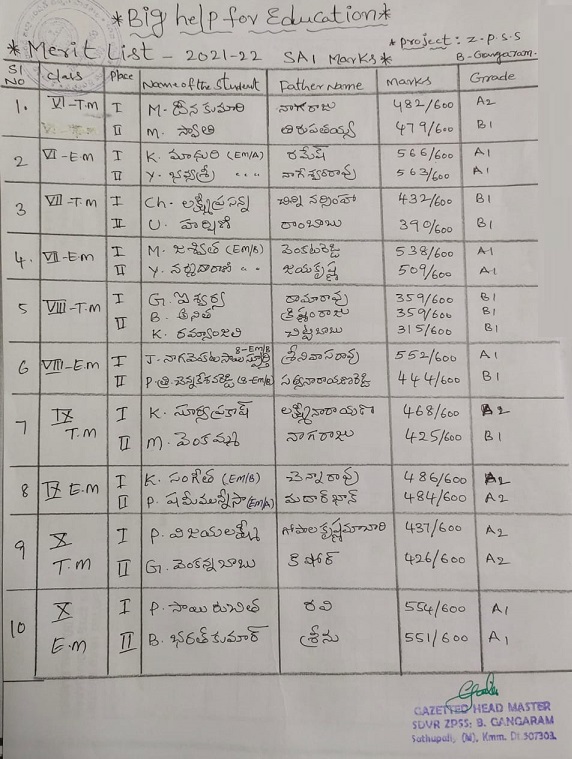 *Big help for Education*
*Merit List - 2021-22 SAI Marks* *project: Z.P.S.S
B. Gangaram.
Sl No Class Place Name of the Student Father Name marks Grade
1. VI-T.M I M. దీన కుమారి నాగరాజు 482/600 A2
II M. స్వాతి తిరుపతయ్య 479/600 B1
2 VI-E.M I K. మాధురి (Em/A) రమేష్ 566/600 A1
II Y. భవ్యశ్రీ " " " నాగేశ్వరరావు 563/600 A1
3 VII-T.M I Ch. లక్ష్మీ ప్రసన్న చిన్ని నర్సింహా 432/600 B1
II U. హర్షిణి రాంబాబు 390/600 B1
4. VII-E.M I M. జశ్విత (EM/B) వెంకటరెడ్డి 538/600 A1
II Y. " " జయకృష్ణ 509/600 A1
5 VIII-T.M I G. ఐశ్వర్య రామారావు 359/600 B1
II B. అనిత క్రిష్ణంరాజు 359/600 B1
K. రమ్యాంజలి చిట్టిబాబు 315/600 B1
6 VIII-E.M I J. 8-EM/B శ్రీనివాసరావు 552/600 A1
II P. త్రి. చెన్నకేశవరెడ్డి (8-EM/B) సత్యనారాయణరెడ్డి 444/600 B1
7 IX T.M I K. సూర్యప్రకాష్ లక్ష్మీనారాయణ 468/600 A2
II M. వెంకమ్మ నాగరాజు 425/600 B1
8 IX E.M I K. సంగీత (EM/B) చెన్నారావు 486/600 A2
II P. షమీమున్నీసా (EM/A) మదార్ ఖాన్ 484/600 A2
9 X T.M I P. విజయలక్ష్మి గోపాలకృష్ణమాచారి 437/600 A2
II G. వెంకన్నబాబు కిషోర్ 426/600 A2
10 X E.M I P. సాయి రుచిత రవి 554/600 A1
II B. భరత్ కుమార్ శ్రీను 551/600 A1
GAZETTED HEAD MASTER
SDVR ZPSS: B. GANGARAM
Sathupali, (M), Kmm. Dt 507303.